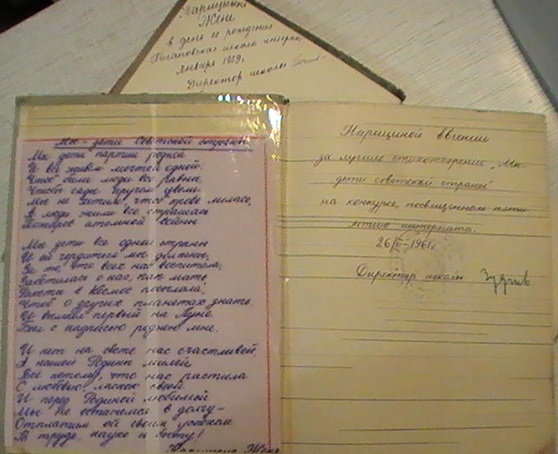 Нарициной
Жене
в день её рождения
января 1959г.
Директор школы
Мы - дети Советской страны
Мы дети партии родной
И все живём мечтой одной:
Чтоб были люди все равны,
Чтобы сады кругом цвели
Мы не хотим, чтоб кровь лилась,
А люди жили все страшась
Пожаров атомной войны
Мы дети все одной страны
И ей гордиться мы должны,
За то, что всех нас воспитала,
Заботилась о нас, как мать
Ракеты в космос посылала,
Чтоб о других планетах знать
И вымпел первый на Луне
Был с надписью родною мне.
И нет на свете нас счастливей,
А нашей Родины милей
Всё потому, что нас растила
С любовью, ласкою своей
И перед Родиной любимой
Мы не останемся в долгу-
Отплатим ей своим успехом
В труде, науке и быту!
Женя
Нарициной Евгении
за лучшее стихотворение „Мы-
дети советской страны"
на конкурсе, посвященном пяти-
летию интерната.
26/II-1961г.
Директор школы